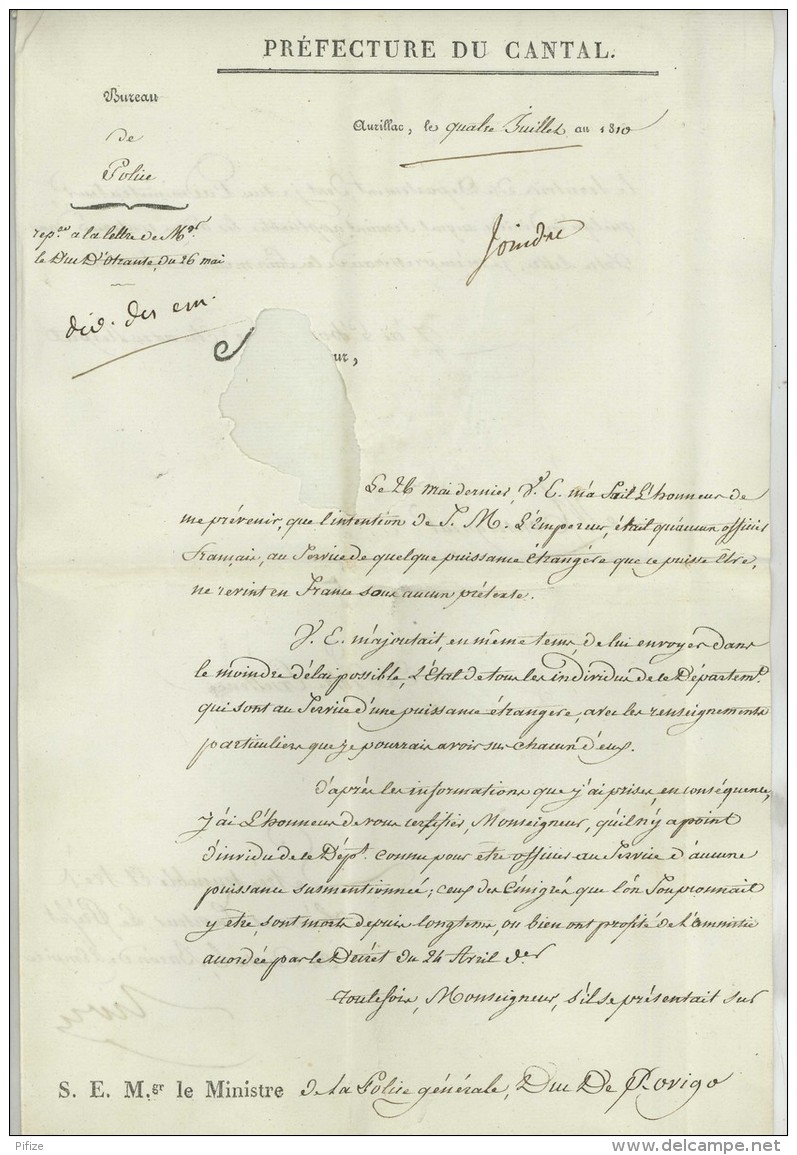 PRÉFECTURE DU CANTAL.
Bureau
de
Police
Aurillac, le quatre Juillet an 1810
rep.se a la lettre de M.gr
le Duc D'Otrante, du 26 mai
Joindre
div. des em.
ur,
Le 26 mai dernier, V. E. m'a fait L'honneur de
me prévenir, que l'intention de S. M. L'Empereur, était qu'aucun officier
français, au Service de quelque puissance étrangère que ce puisse être,
ne revint en France sous aucun prétexte.
V. E. m'ajoutait, en même tems, de lui envoyer dans
le moindre délai possible, L'état de tous les individus de ce Départem.t
qui sont au Service d'une puissance étrangere, avec les renseignements
particuliers que je pourrais avoir sur chacun d'eux.
d'après les informations que j'ai prises, en conséquence,
j'ai L'honneur de vous certifier, Monseigneur, qu'il n'y a point
d'invidu de ce Dép.t connu pour être officier au Service d'aucune
puissance susmentionnée; ceux des Emigrés que l'on Soupçonnait
y être, sont morts depuis longtems, ou bien ont profité de L'amnistie
acordée par le Décret du 24 Avril der
toutefois, Monseigneur, s'il se présentait sur
S. E. M.gr le Ministre de la Police générale, Duc De Rovigo
Pifize
www.delcampe.net